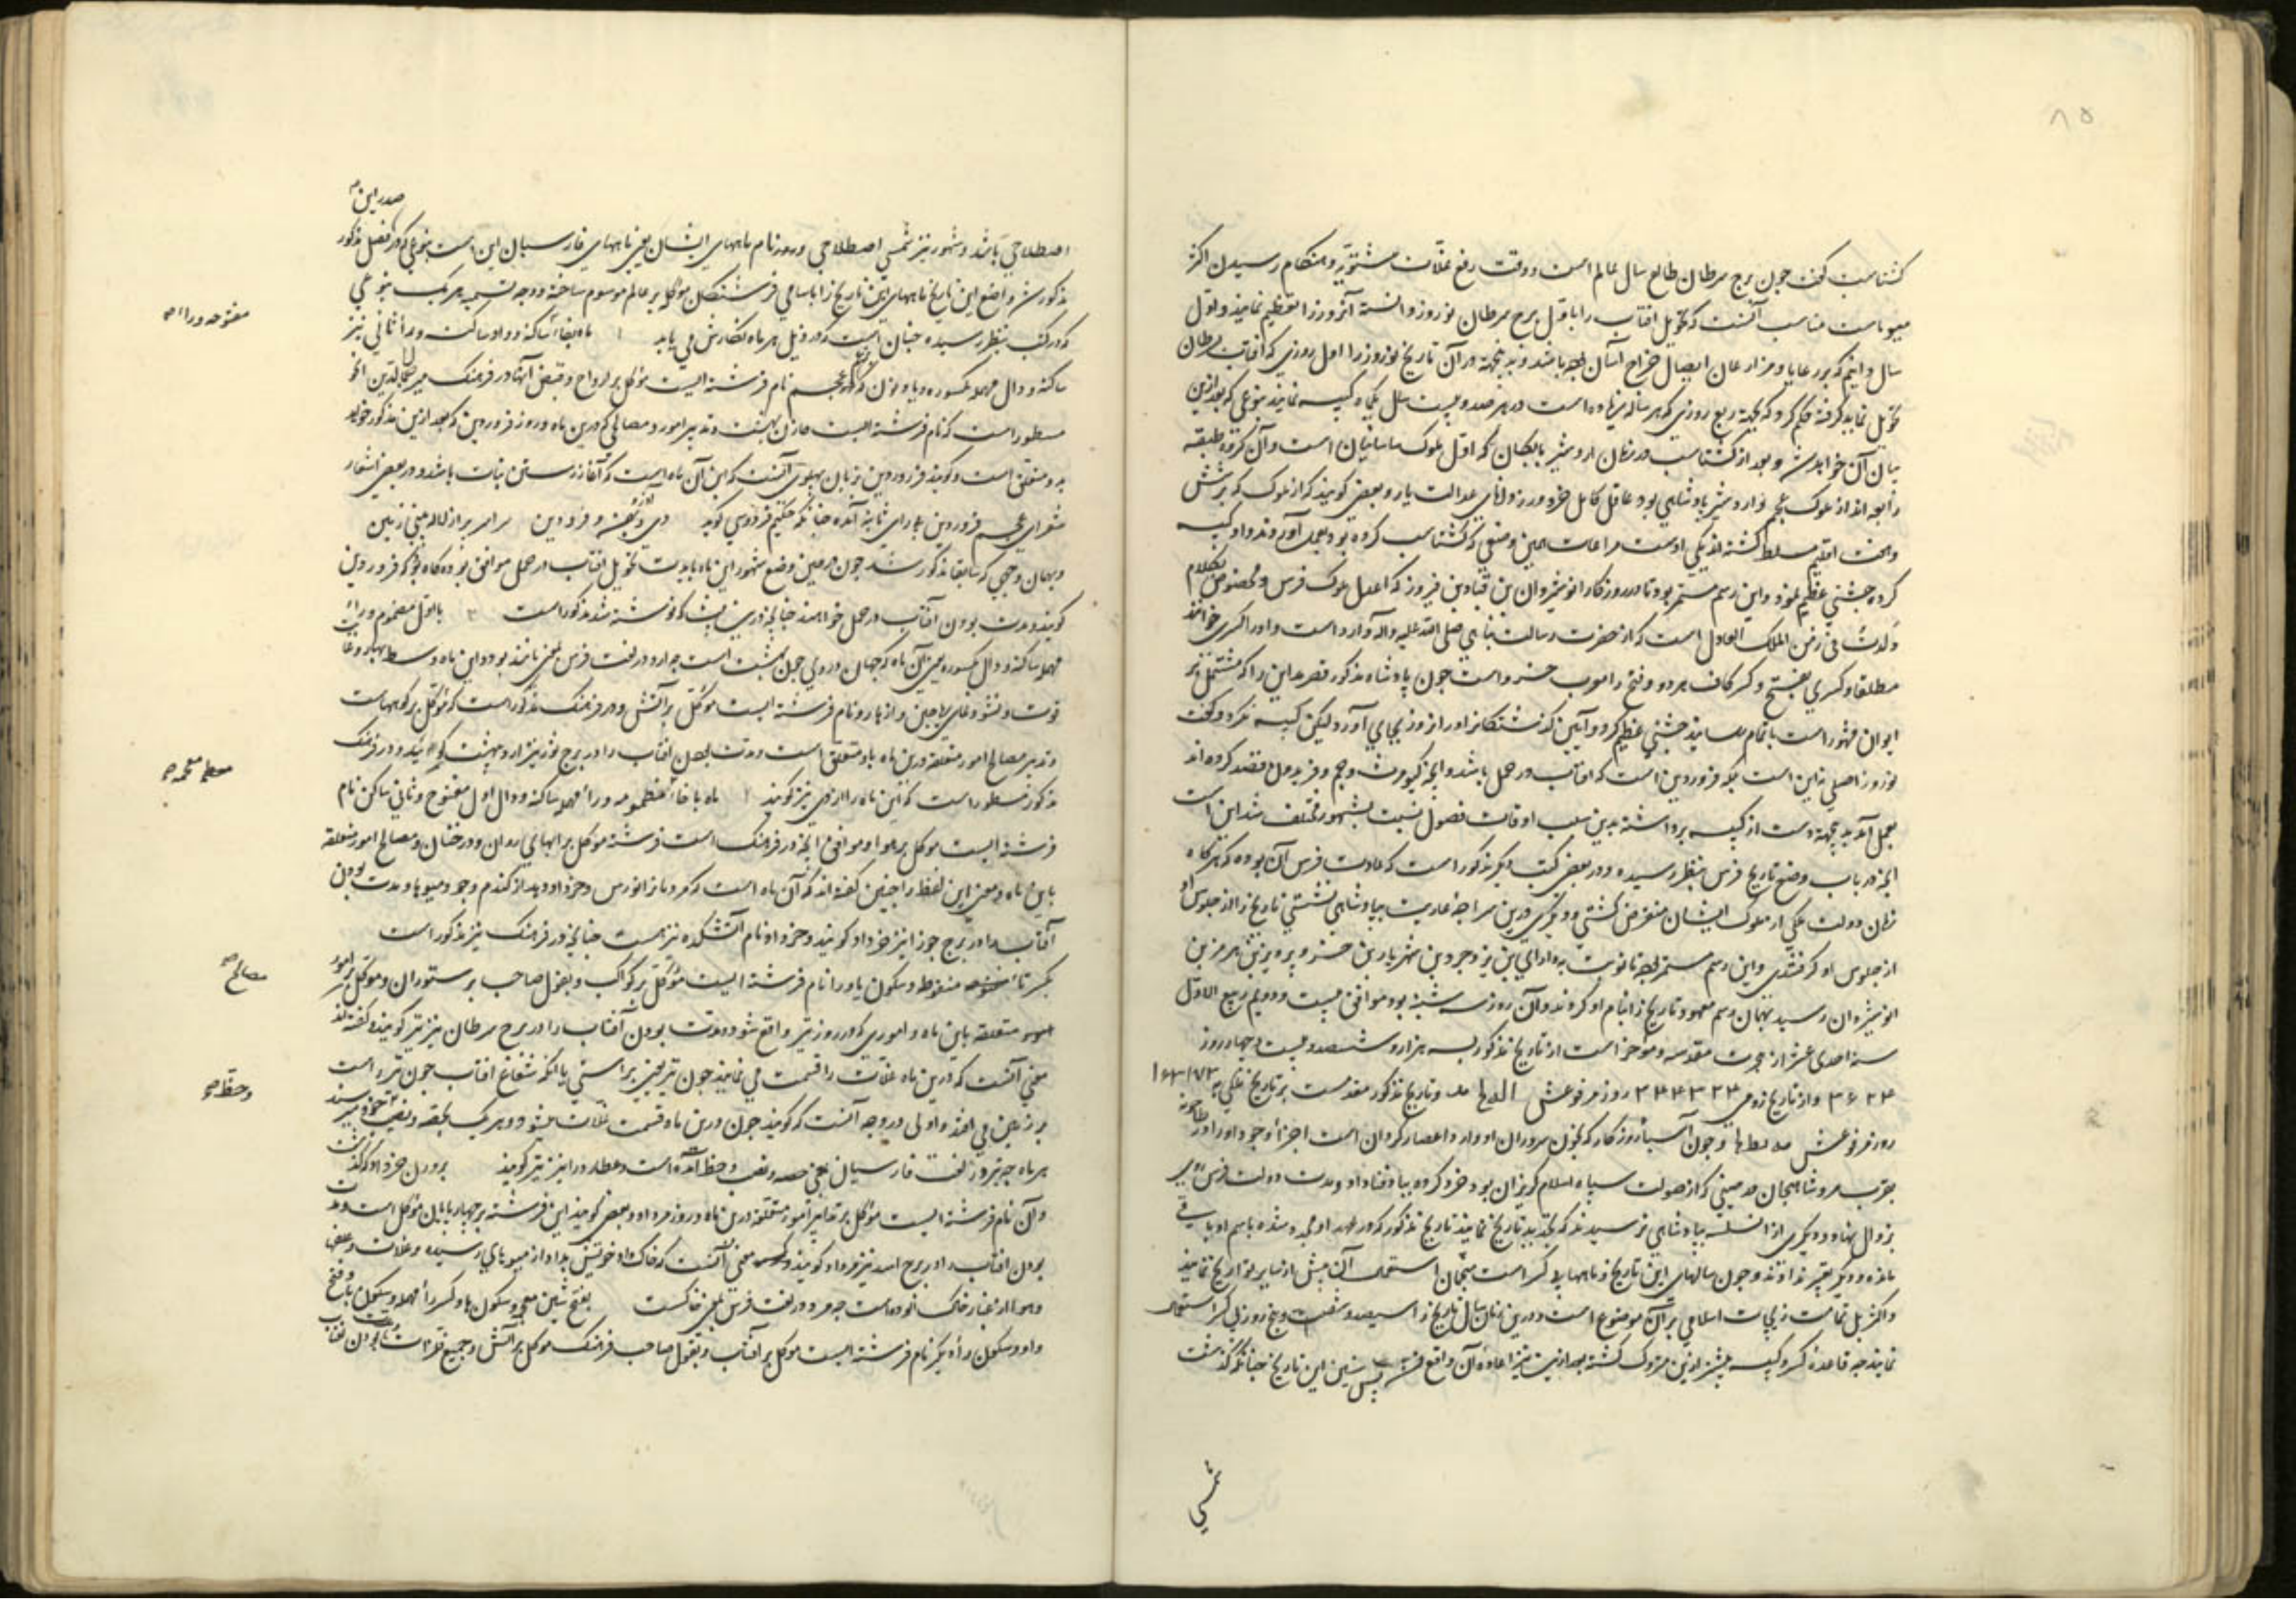 ۸۵
کشتاسب گفت چون برج سرطان طالع سال عالم است و وقت رفع غلات مشتویه و هنگام رسیدن اکثر
میوهاست مناسب آنست که تحویل افتاب را باول برج سرطان نوروز دانسته آنروز را تعظیم نمایند و اول
سال دانیم که بر رعایا و مزارعان ایصال خراج آسان بود باشد و بدینجهة در آن تاریخ نوروز را اول روزی که افتاب بسرطان
تحویل نماید گرفته حکم کرد که بجهة ربع روزی که هر ساله میزیاده است در هر صد و بیست سال یکماه کبیسه نمایند بنوعی که بعد ازین
بیان آن خواهد شد و بعد از کشتاسب در زمان اردشیر بابکان که اول ملوک ساسانیان است و آن گروه طبقه
رابعه اند از ملوک عجم و اردشیر پادشاهی بود عاقل کامل خردور و دانای عدالت یار و بعضی گویند که از ملوک که بر شش
و هفت اقلیم مسلط گشته اند یکی اوست مراعات همین وضعی که کشتاسب کرده بود بعمل آورد و داد کبیسه
کرده جشنی عظیم نمود و این رسم مستمر بود تا در روزکار انوشیروان بن قباد بن فیروز که اعدل ملوک فرس و مخصوص بکلام
ولدت فی زمن الملک العادل است که از حضرت رسالت پناهی صلی الله علیه و اله وارد است و او را کسری خوانند
مطلقا و کسری بفتح و کسر کاف هر دو و فتح را معرب خسرو است چون پادشاه مذکور قصر مداین را که مشتمل بر
ایوان مشهور است باتمام رسانید جشنی عظیم کرد و آیین گذشتکان را در آن روز بجای آورد لیکن کبیسه نکرد و گفت
نوروز اصلی نه این است بلکه فروردین است که افتاب در حمل باشد و آنچه کیومرث و جم و فریدون قصد کرده اند
بعمل آمد بدینجهة دست از کبیسه برداشته بدین سبب اوقات فصول نسبت بشهور مختلف شد این است
آنچه در باب وضع تاریخ فرس بنظر رسیده و در بعضی کتب دیگر مذکور است که عادت فرس آن بوده که هر گاه
زمان دولت ملکی از ملوک ایشان منقرض گشتی و دیگری درین سراچه عاریت بپادشاهی نشستی تاریخ را از جلوس او
از جلوس او گرفتندی و این رسم مستمر بود تا نوبت بدارایی بن یزدجرد بن شهریار بن خسرو پرویز بن هرمز بن
انوشیروان رسید بهمان رسم معهود تاریخ را بنام او کردند و آن روز سه شنبه بود موافق بیست و دویم ربیع الاول
سنه احدی عشر از هجرت مقدسه و مؤخر است از تاریخ مذکور بسه هزار و ششصد و بیست و چهار روز
۳۶۲۴ و از تاریخ رومی ۳۴۴۳۲۴ روز مرفوعش
روز مرفوعش و چون آسیای روزگار که بخون سروران ادوار و اعصار گردان است اجزاء وجود او را در طاحونه
بقرب مرو شاهجان در حینی که از صولت سپاه اسلام گریزان بود خرد کرده بباد فنا داد و مدت دولت فرس
بزوال نهاد و دیگری از انسلسه بپادشاهی نرسید ند که تجدید تاریخ نمایند تاریخ مذکور که در عهد او مجدد شده باسم او باقی
مانده و دیگر تغییر ندادند و چون سالهای این تاریخ و ماههاء بی کسر است منجمان استعمال آن بیش از سایر تواریخ نمایند
و اکثر بل تمامت زیجات اسلامی بر آن موضوع است و درین زمان سال تاریخ را سیصد و شصت و پنج روز بی کسر استعمال
نمایند چه قاعده کسر و کبیسه پیشتر ازین متروک گشته بعد ازین نیز اعاده آن واقع نشد پس سنین این تاریخ چنانکه گذشت
شمسی
صدر این
اصطلاحی باشد و شهور نیز شمسی اصطلاحی و روز نام ماههای ایشان یعنی ماههای فارسیان این است بنوعی که در فصل مذکور
مذکور شد واضع این تاریخ ماههای این تاریخ را باسامی فرشتکان موکل بر عالم موسوم ساخته و وجه تسمیه هر یک بنوعی
که در کتب بنظر رسیده چنان است که در ذیل هر ماه نگارش می یابد ۱ ماه بفا ساکنه و واو ساکت و راء ثانی نیز
مفتوحه و را
ساکنه و دال مهمله مکسوره و یا و نون که عجم نام فرشته ایست موکل بر ارواح و قبض آنها در فرهنگ میر جمال الدین انجو
مسطور است که نام فرشته ایست خازن بهشت و تدبیر امور و مصالحی که درین ماه و روز فروردین که بعد ازین مذکور خواهد
به و متعلق است و گویند فروردین بزبان پهلوی آنست که این آن ماه است که آغاز رستن نبات باشد و در بعضی اشعار
شعرای عجم فروردین بجای ثانیه آمده چنانکه حکیم فردوسی گوید دی و بهمن و فرودین سراسر پر از لاله بینی زمین
و بهمان وجهی که سابقا مذکور شد چون در حین وضع شهور این ماه با مدت تحویل افتاب در حمل موافق بوده گاه بود که فروردین
گویند و مدت بودن آفتاب در حمل خواهند چنانچه درین بیت که نوشته شد مذکور است ۲ با اول مضموم و راء
مهمله ساکنه و دال مکسوره یعنی آن ماه که جهان در وی چون بهشت است چه ارد در لغت فرس بمعنی مانند بود و این ماه وسط بهار و غایت
قوت و نشو نمای ریاحین و ازهار و نام فرشته ایست موکل بر آتش و در فرهنگ مذکور است که موکل بر کوههاست
و تدبیر مصالح امور متعلقه درین ماه باو متعلق است و مدت بودن افتاب را در برج ثور نیز اردیبهشت گویند و در فرهنگ
مذکور مسطور است که این ماه را اردی نیز گویند ۳ ماه با خاء مضمومه و راء مهمله ساکنه و دال اول مفتوح و ثانی ساکن نام
فرشته ایست موکل بر هوا و موافق آنچه در فرهنگ است فرشته موکل بر آبهای روان و درختان و مصالح امور متعلقه
باین ماه و معنی این لفظ را چنین گفته اند که آن ماه است که مردمان را خورش دهد از گندم و جو و میوها و مدت بودن
آفتاب را در برج جوزا نیز خرداد گویند و خرداد نام آتشکده نیز هست چنانچه در فرهنگ نیز مذکور است
بکسر تاء منقوط و سکون یا و را نام فرشته ایست موکل بر کواکب و بقول صاحب بر ستوران و موکل بر امور
مصالح
متعلقه باین ماه و اموری که در روز تیر واقع شود و مدت بودن آفتاب را در برج سرطان نیز تیر گویند و گفته اند
معنی آنست که درین ماه غلات را قسمت می نمایند چون تیر بتیر براستی یا آنکه شعاع افتاب چون تیر راست
و حظ
بر زمین می افتد و اولی در وجه آنست که گویند چون درین ماه قسمت غلات میشود و هر یک بحصه و نصیب خود میرسند
هر ماه چه تیر در لغت فارسیان بمعنی حصه و نصیب و حظ آمده است و عطارد را نیز تیر گویند بر وزن خرداد
و آن نام فرشته ایست موکل بر تدابیر امور متعلقه درین ماه و روز مرداد و بعضی گویند این فرشته بر چهارپایان موکل است و مدت
بودن افتاب را در برج اسد نیز مرداد گویند و معنی آنست که خاک داد خویش بداد از میوهای رسیده و غلات و علفها
و هوا از غبار خاک آلوده است چه مر در لغت فرس بمعنی خاکست بفتح شین معجمه و سکون ها و کسر راء مهمله و سکون یا و فتح
واو و سکون راء دیگر نام فرشته ایست موکل بر آفتاب و بقول صاحب فرهنگ موکل بر آتش و جمیع فلزات و مدت بودن افتاب